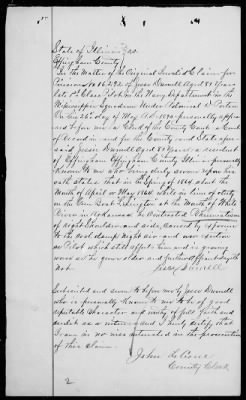 State of Illinois } ss.
Effingham County }
In the Matter of the Original Invalid Claim for
Pension No 16,292 of Jesse Duvall Aged 81 Years
late 1st Class Pilot in the Navy Department in the
Mississippi Squadron Under Admiral D. Porter
On this 26th day of May A.D. 1890 personally appea
red before me a Clerk of the County Court a Court
of Record in and for the County and State afore
said Jessie Duvall 81 Years a resident
of Effingham Effingham County Illinois personally
known to me who being duly sworn upon his
oath states that in the Spring of 1864 about the
Month of April or May 1864 while in line of duty
on the Gun Boat Lexington at the Mouth of White
River in Arkansas he Contracted Rheumatism
of right Shoulder and side, caused by Exposure
to the cool damp Night air and over
as Pilot which still affect him and is growing
worse as he grows older and further affiant sayeth
not. Jesse Duvall
Subscribed and sworn to before me by Jesse Duvall
who is personally known to me to be of good
reputable Character and worthy of full faith and
credit as a witness and I hereby certify that
I am in no wise interested in the prosecution
of this claim.
John
County Clerk
2